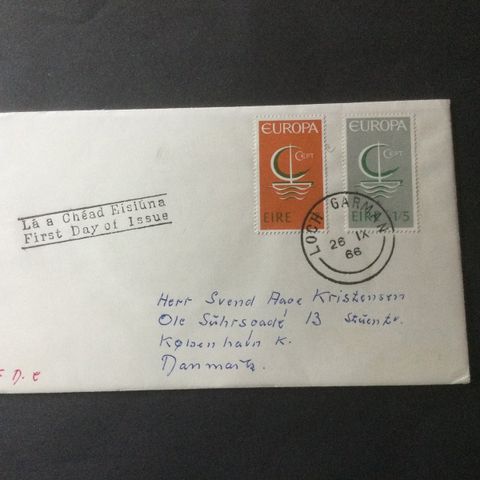 Lá a Chéad Eisiúna
First Day of Issue
EUROPA
CEPT
EIRE
EUROPA
CEPT
EIRE 1/5
LOCH GARMAN
26 IX
66
Herr Svend Aage Kristensen
Ole Suhrsgade 13
København K.
Danmark.
F. D. C